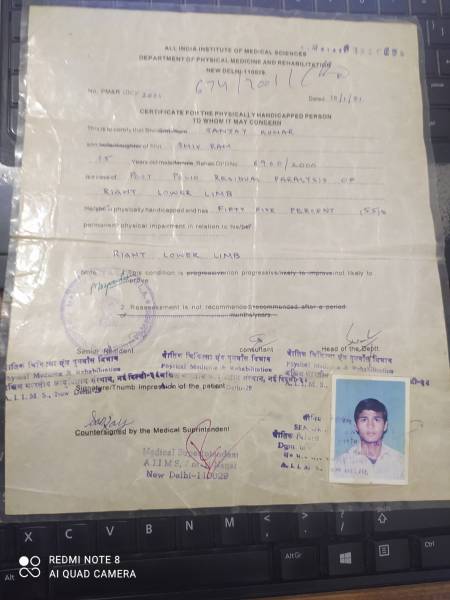 ALL INDIA INSTITUTE OF MEDICAL SCIENCES
DEPARTMENT OF PHYSICAL MEDICINE AND REHABILITATION
NEW DELHI-110029
674/2001/
No. PMAR
Dated 10/1/01
CERTIFICATE FOR THE PHYSICALLY HANDICAPPED PERSON
TO WHOM IT MAY CONCERN
This is to certify that Shri SANJAY KUMAR
SHIV RAM
15 Years old male 6960/2000
is a case of POST POLIO RESIDUAL PARALYSIS OF
RIGHT LOWER LIMB
He/she is physically handicapped and has FIFTY FIVE PERCENT (55)%
permanent physical impairment in relation to his/her
RIGHT LOWER LIMB
Note 1. This condition is progressive/non progressive/likely to improve/not likely to
improve
2. Reassessment is not recommended/recommended after a period
of months/years
Senior Resident consultant Head of the Deptt.
भौतिक चिकित्सा एंव पुनर्वास विभाग भौतिक चिकित्सा एंव पुनर्वास विभाग
Physical Medicine & Rehabilitation Physical Medicine & Rehabilitation
नई दिल्ली
A.I.I.M.S., New Delhi-29
Signature/Thumb Impression of the patient
Sanjay
Countersigned by the Medical Superintendent
Medical Superintendent
A.I.I.M.S. Nagar
New Delhi-110029
X C V B N M < >
Alt AltGr Ctrl
REDMI NOTE 8
AI QUAD CAMERA